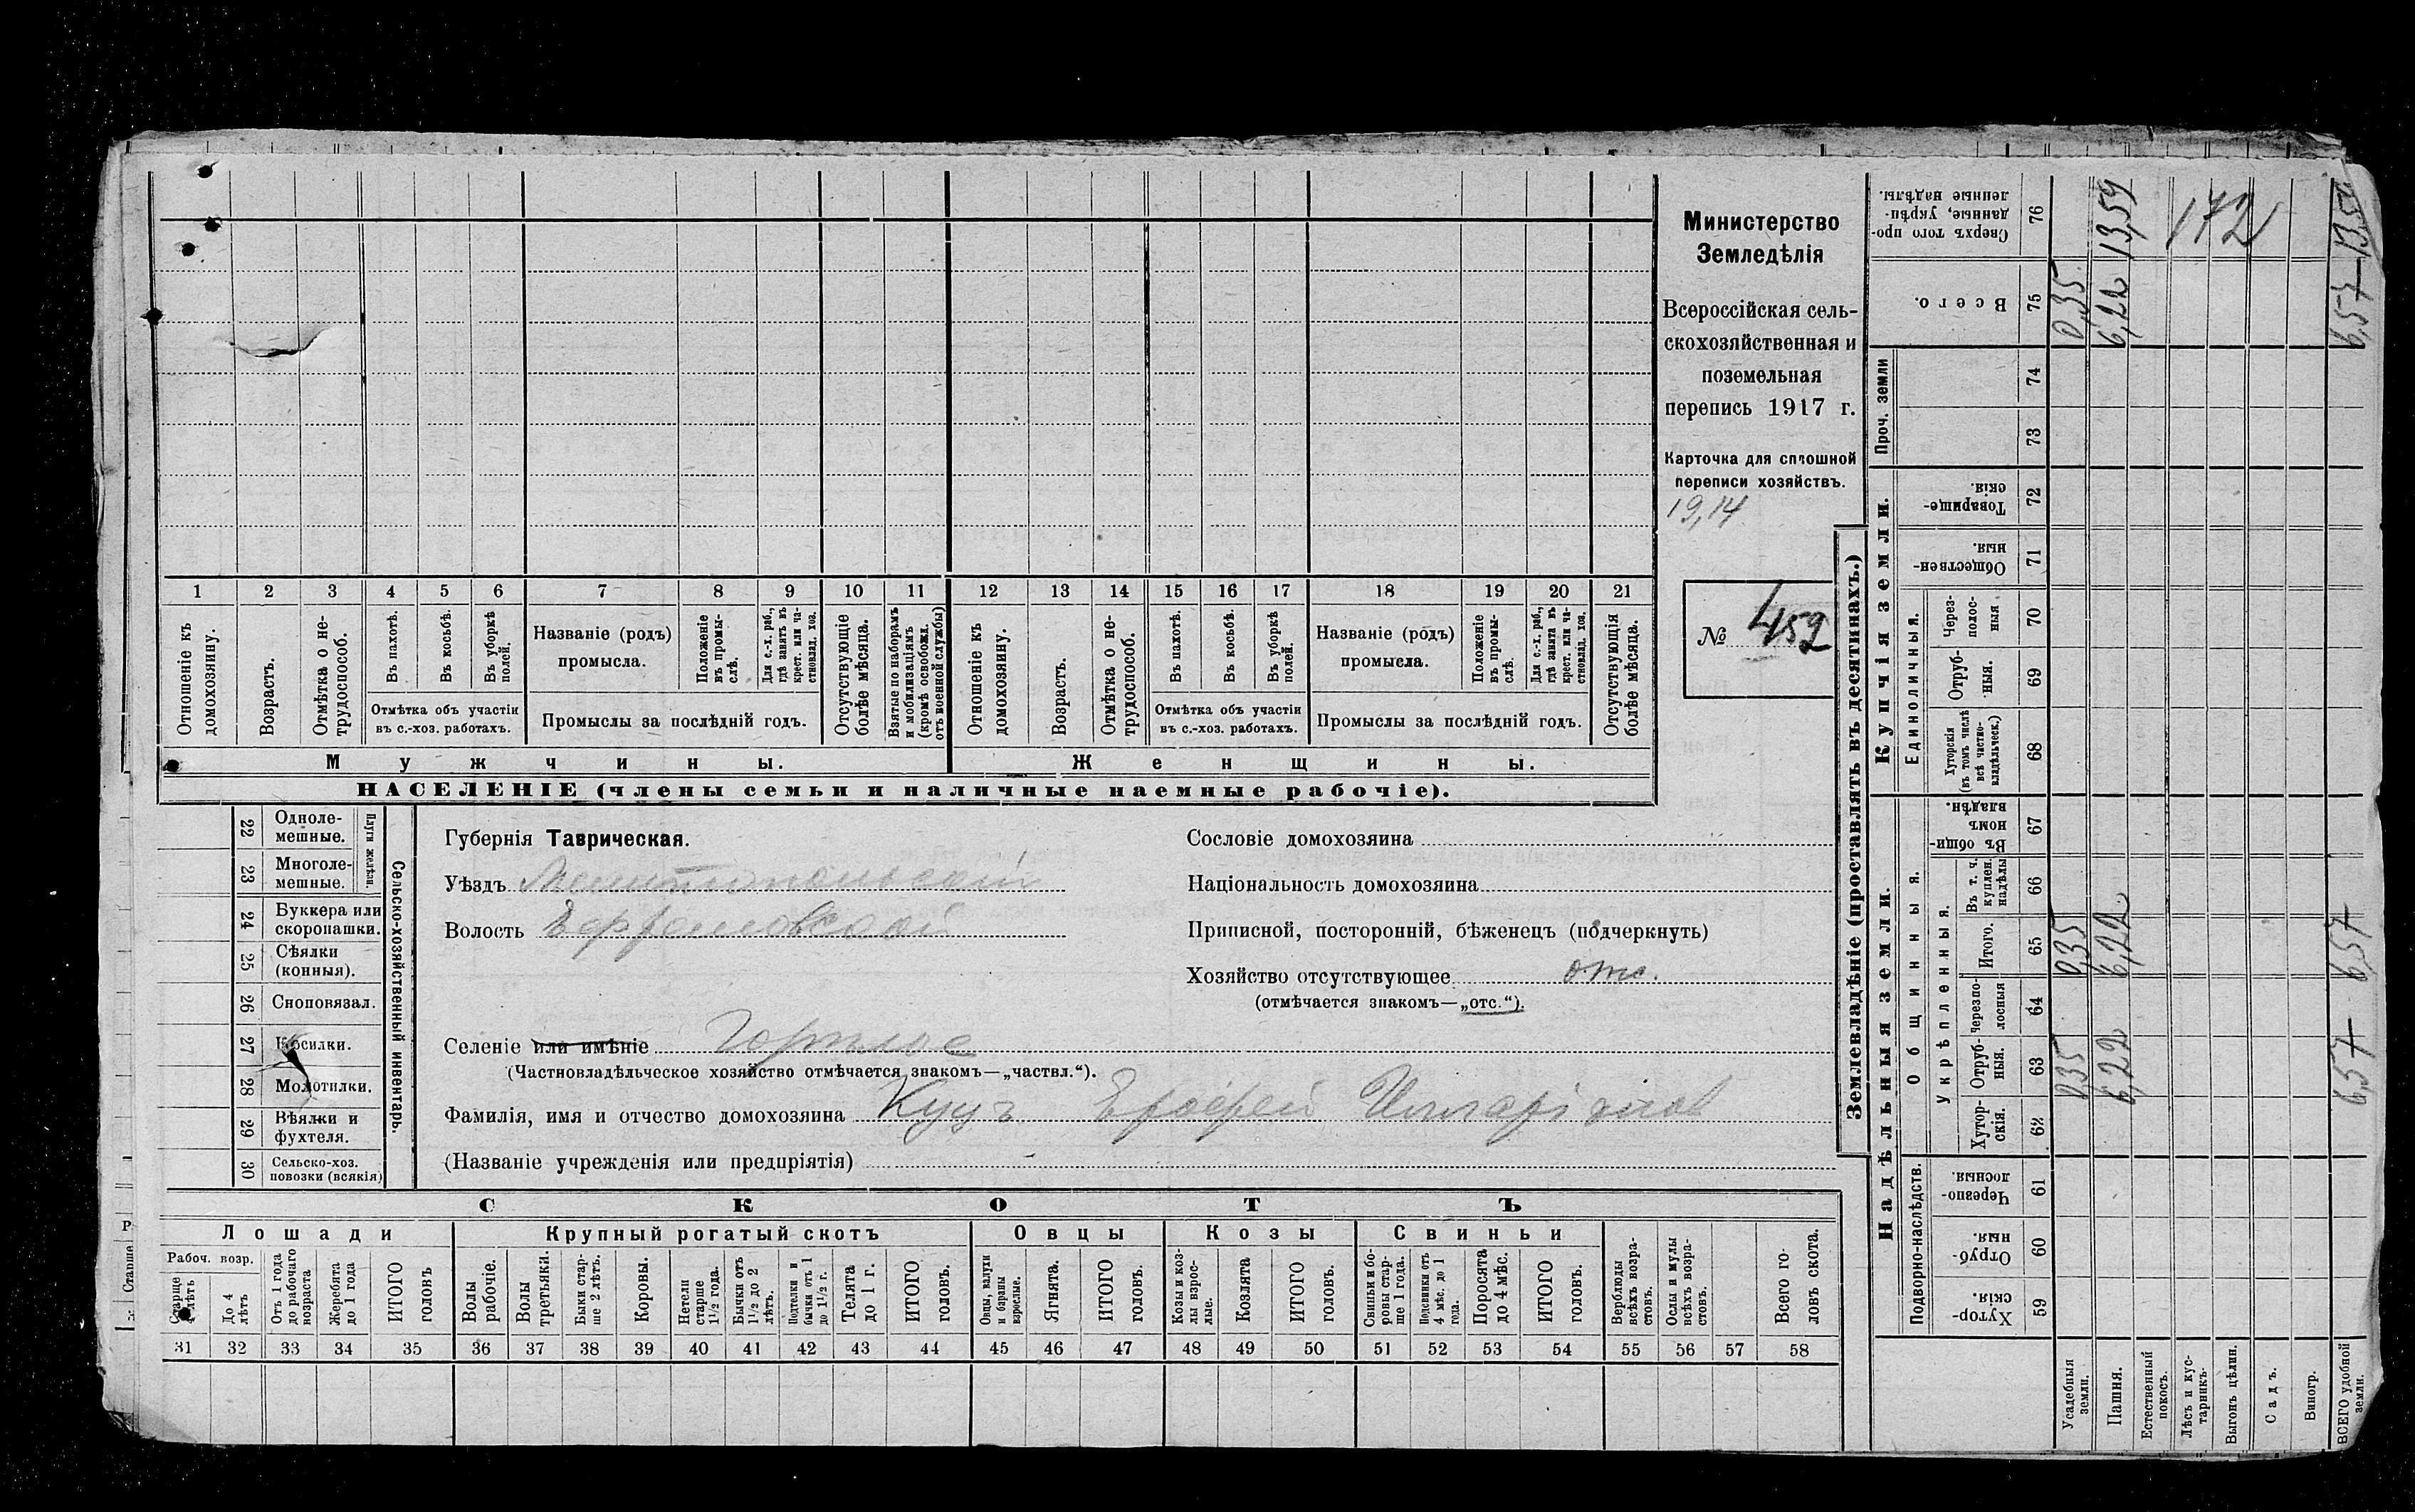 Министерство
Земледѣлія
Всероссійская сель-
скохозяйственная и
поземельная
перепись 1917 г.
Карточка для сплошной
переписи хозяйствъ.
19,14
№ 452
1 2 3 4 5 6 7 8 9 10 11 12 13 14 15 16 17 18 19 20 21
Отношеніе къ домохозяину.
Возрастъ.
Отмѣтка о не-трудоспособ.
Въ пахотѣ.
Въ косьбѣ.
Въ уборкѣ полей.
Отмѣтка объ участіи
въ с.-хоз. работахъ.
Названіе (родъ)
промысла.
Положеніе въ промы-слѣ.
Для с.-х. раб., гдѣ занятъ въ крест. или ча-стновлад. хоз.
Промыслы за послѣдній годъ.
Отсутствующіе болѣе мѣсяца.
Взятые по наборамъ и мобилизаціямъ (кромѣ освобожд. отъ военной службы)
Отношеніе къ домохозяину.
Возрастъ.
Отмѣтка о не-трудоспособ.
Въ пахотѣ.
Въ косьбѣ.
Въ уборкѣ полей.
Отмѣтка объ участіи
въ с.-хоз. работахъ.
Названіе (родъ)
промысла.
Положеніе въ промы-слѣ.
Для с.-х. раб., гдѣ занята въ крест. или ча-стновлад. хоз.
Промыслы за послѣдній годъ.
Отсутствующія болѣе мѣсяца.
Мужчины.
Женщины.
НАСЕЛЕНІЕ (члены семьи и наличные наемные рабочіе).
Сельско-хозяйственный инвентарь.
Плуги желѣзн.
22 Одноле-мешные.
23 Многоле-мешные.
24 Буккера или скоропашки.
25 Сѣялки (конныя).
26 Сноповязал.
27 Косилки.
28 Молотилки.
29 Вѣялки и фухтеля.
30 Сельско-хоз. повозки (всякія)
Губернія Таврическая.
Уѣздъ Мелитопольскій
Волость
Сословіе домохозяина
Національность домохозяина
Приписной, посторонній, бѣженецъ (подчеркнуть)
Хозяйство отсутствующее отс.
(отмѣчается знакомъ—„отс.“).
Селеніе или имѣніе
(Частновладѣльческое хозяйство отмѣчается знакомъ—„частвл.“).
Фамилія, имя и отчество домохозяина Куцъ Ерофей Илларіонов
(Названіе учрежденія или предпріятія)
СКОТЪ
Лошади
Крупный рогатый скотъ
Овцы
Козы
Свиньи
Рабоч. возр.
Старше 4 лѣтъ
До 4 лѣтъ
Отъ 1 года до рабочаго возраста
Жеребята до 1 года
ИТОГО головъ
Волы рабочіе.
Волы третьяки.
Быки стар-ше 2 лѣтъ.
Коровы.
Нетели старше 1½ года.
Бычки отъ 1½ до 2 лѣтъ.
Подтелки и бычки отъ 1 до 1½ г.
Телята до 1 г.
ИТОГО головъ.
Овцы, валухи и бараны взрослые.
Ягнята.
ИТОГО головъ.
Козы и коз-лы взрос-лые.
Козлята
ИТОГО головъ.
Свиньи и бо-ровы стар-ше 1 года.
Подсвинки отъ 4 мѣс. до 1 года.
Поросята до 4 мѣс.
ИТОГО головъ.
Верблюды всѣхъ возра-стовъ.
Ослы и мулы всѣхъ возра-стовъ.
Всего го-ловъ скота.
31 32 33 34 35 36 37 38 39 40 41 42 43 44 45 46 47 48 49 50 51 52 53 54 55 56 57 58
Землевладѣніе (проставлять въ десятинахъ.)
Надѣльныя земли.
Подворно-наслѣдств.
Хутор-скія. 59
Отруб-ныя. 60
Черезпо-лосныя. 61
Общинныя.
Укрѣпленныя.
Хутор-скія. 62
Отруб-ныя. 63 0,35 6,22 6,57
Черезпо-лосныя 64
Итого. 65 0,35 6,22 6,57
Въ т. ч. куплен. надѣлы 66
Въ общин-номъ владѣн. 67
Купчія земли.
Единоличныя.
Хуторскія (въ томъ числѣ всѣ частно-владѣльческ.) 68
Отруб-ныя. 69
Через-полос-ныя 70
Обществен-ныя. 71
Товарище-скія. 72
Проч. земли
73
74
Всего. 75 0,35 6,22 6,57
Сверхъ того про-данные, укрѣп-ленные надѣлы. 76 13,59 172
Усадебныя земли.
Пашня.
Естественный покосъ.
Лѣсъ и кус-тарникъ.
Выгонъ цѣлин.
Садъ.
Виногр.
ВСЕГО удобной земли.